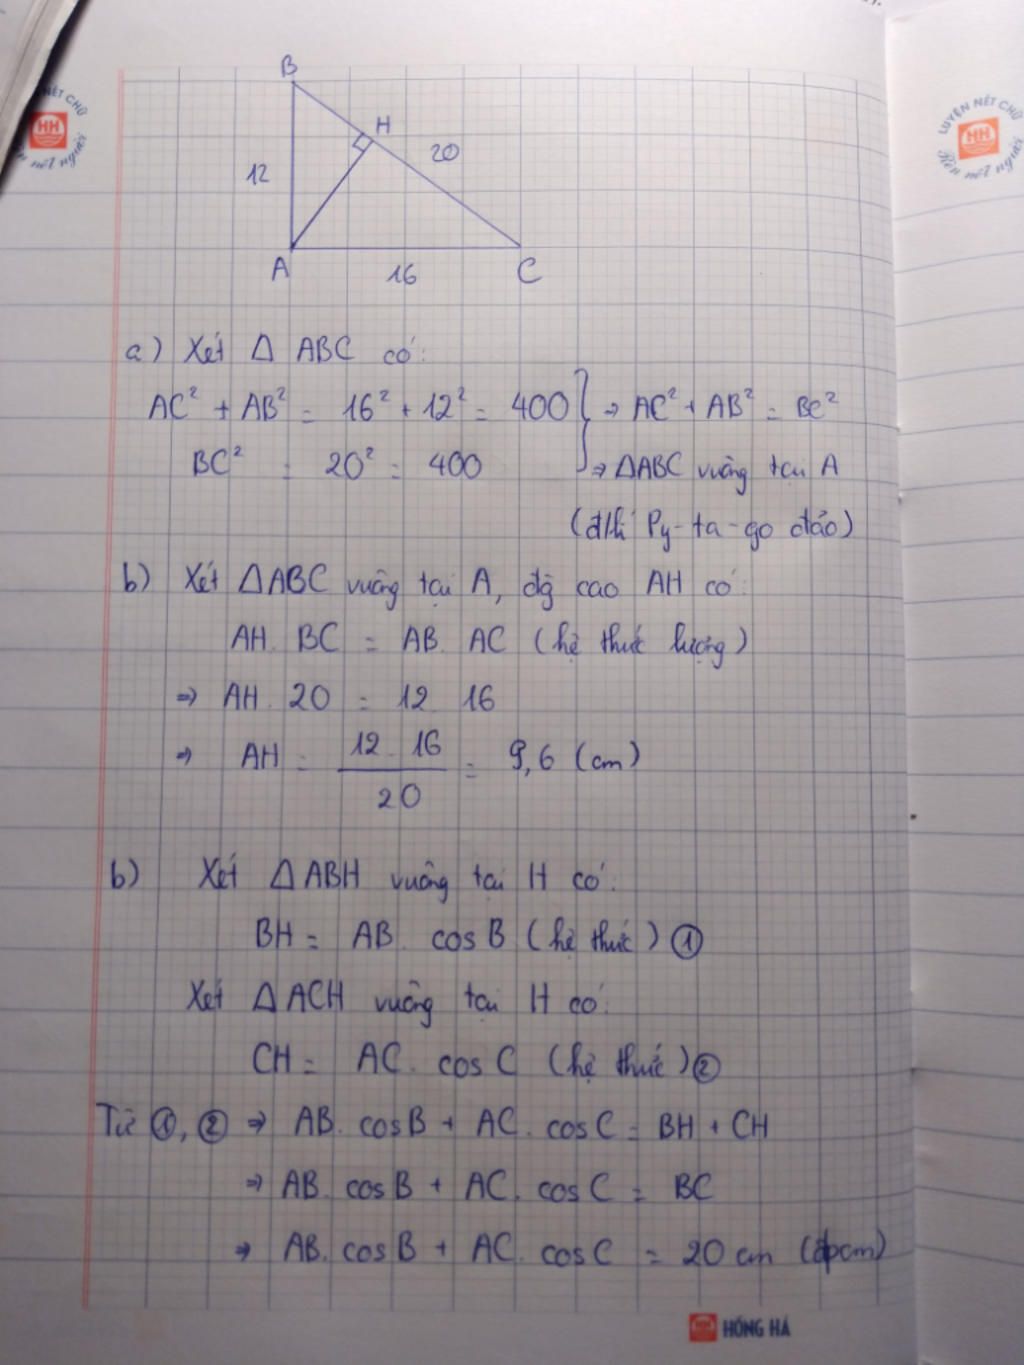 LUYỆN NÉT CHỮ
HH
Rèn nết người
B
H
20
12
A
16
C
a) Xét Δ ABC có:
AC² + AB² = 16² + 12² = 400 } ⇒ AC² + AB² = BC²
BC² = 20² = 400 ⇒ ΔABC vuông tại A
(đ/lí Py-ta-go đảo)
b) Xét ΔABC vuông tại A, đg cao AH có:
AH. BC = AB. AC (hệ thức lượng)
⇒ AH. 20 = 12. 16
⇒ AH = 12. 16 / 20 = 9,6 (cm)
b) Xét ΔABH vuông tại H có:
BH = AB. cosB (hệ thức) ①
Xét ΔACH vuông tại H có:
CH = AC. cosC (hệ thức) ②
Từ ①, ② ⇒ AB. cosB + AC. cosC = BH + CH
⇒ AB. cosB + AC. cosC = BC
⇒ AB. cosB + AC. cosC = 20 cm (đpcm)
HỒNG HÀ
NÉT CHỮ
HH
nết người